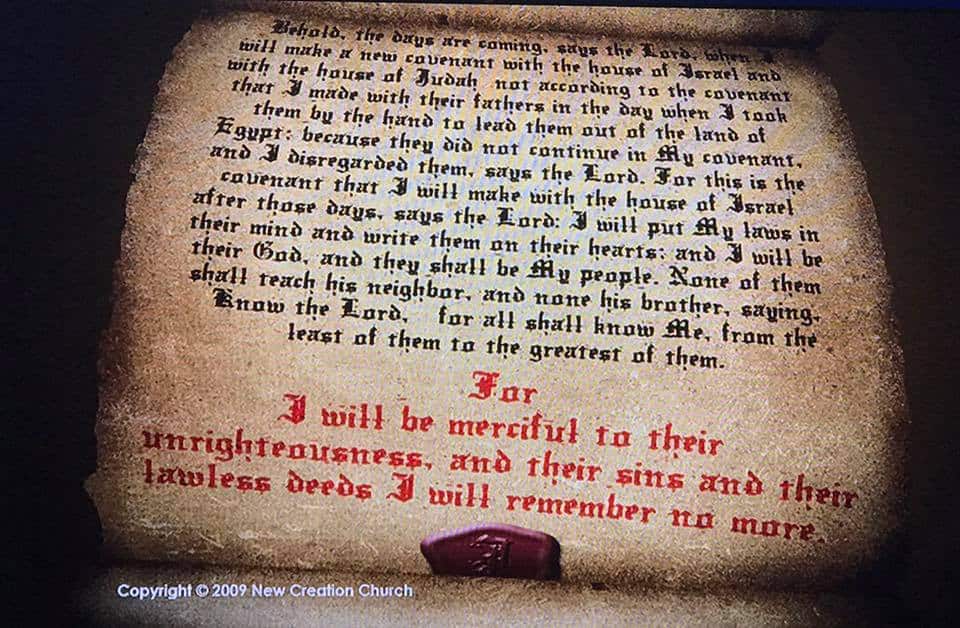 Behold, the days are coming, says the Lord, when I
will make a new covenant with the house of Israel and
with the house of Judah not according to the covenant
that I made with their fathers in the day when I took
them by the hand to lead them out of the land of
Egypt; because they did not continue in My covenant,
and I disregarded them, says the Lord. For this is the
covenant that I will make with the house of Israel
after those days, says the Lord: I will put My laws in
their mind and write them on their hearts; and I will be
their God, and they shall be My people. None of them
shall teach his neighbor, and none his brother, saying,
Know the Lord, for all shall know Me, from the
least of them to the greatest of them.
For
I will be merciful to their
unrighteousness, and their sins and their
lawless deeds I will remember no more.
Copyright © 2009 New Creation Church